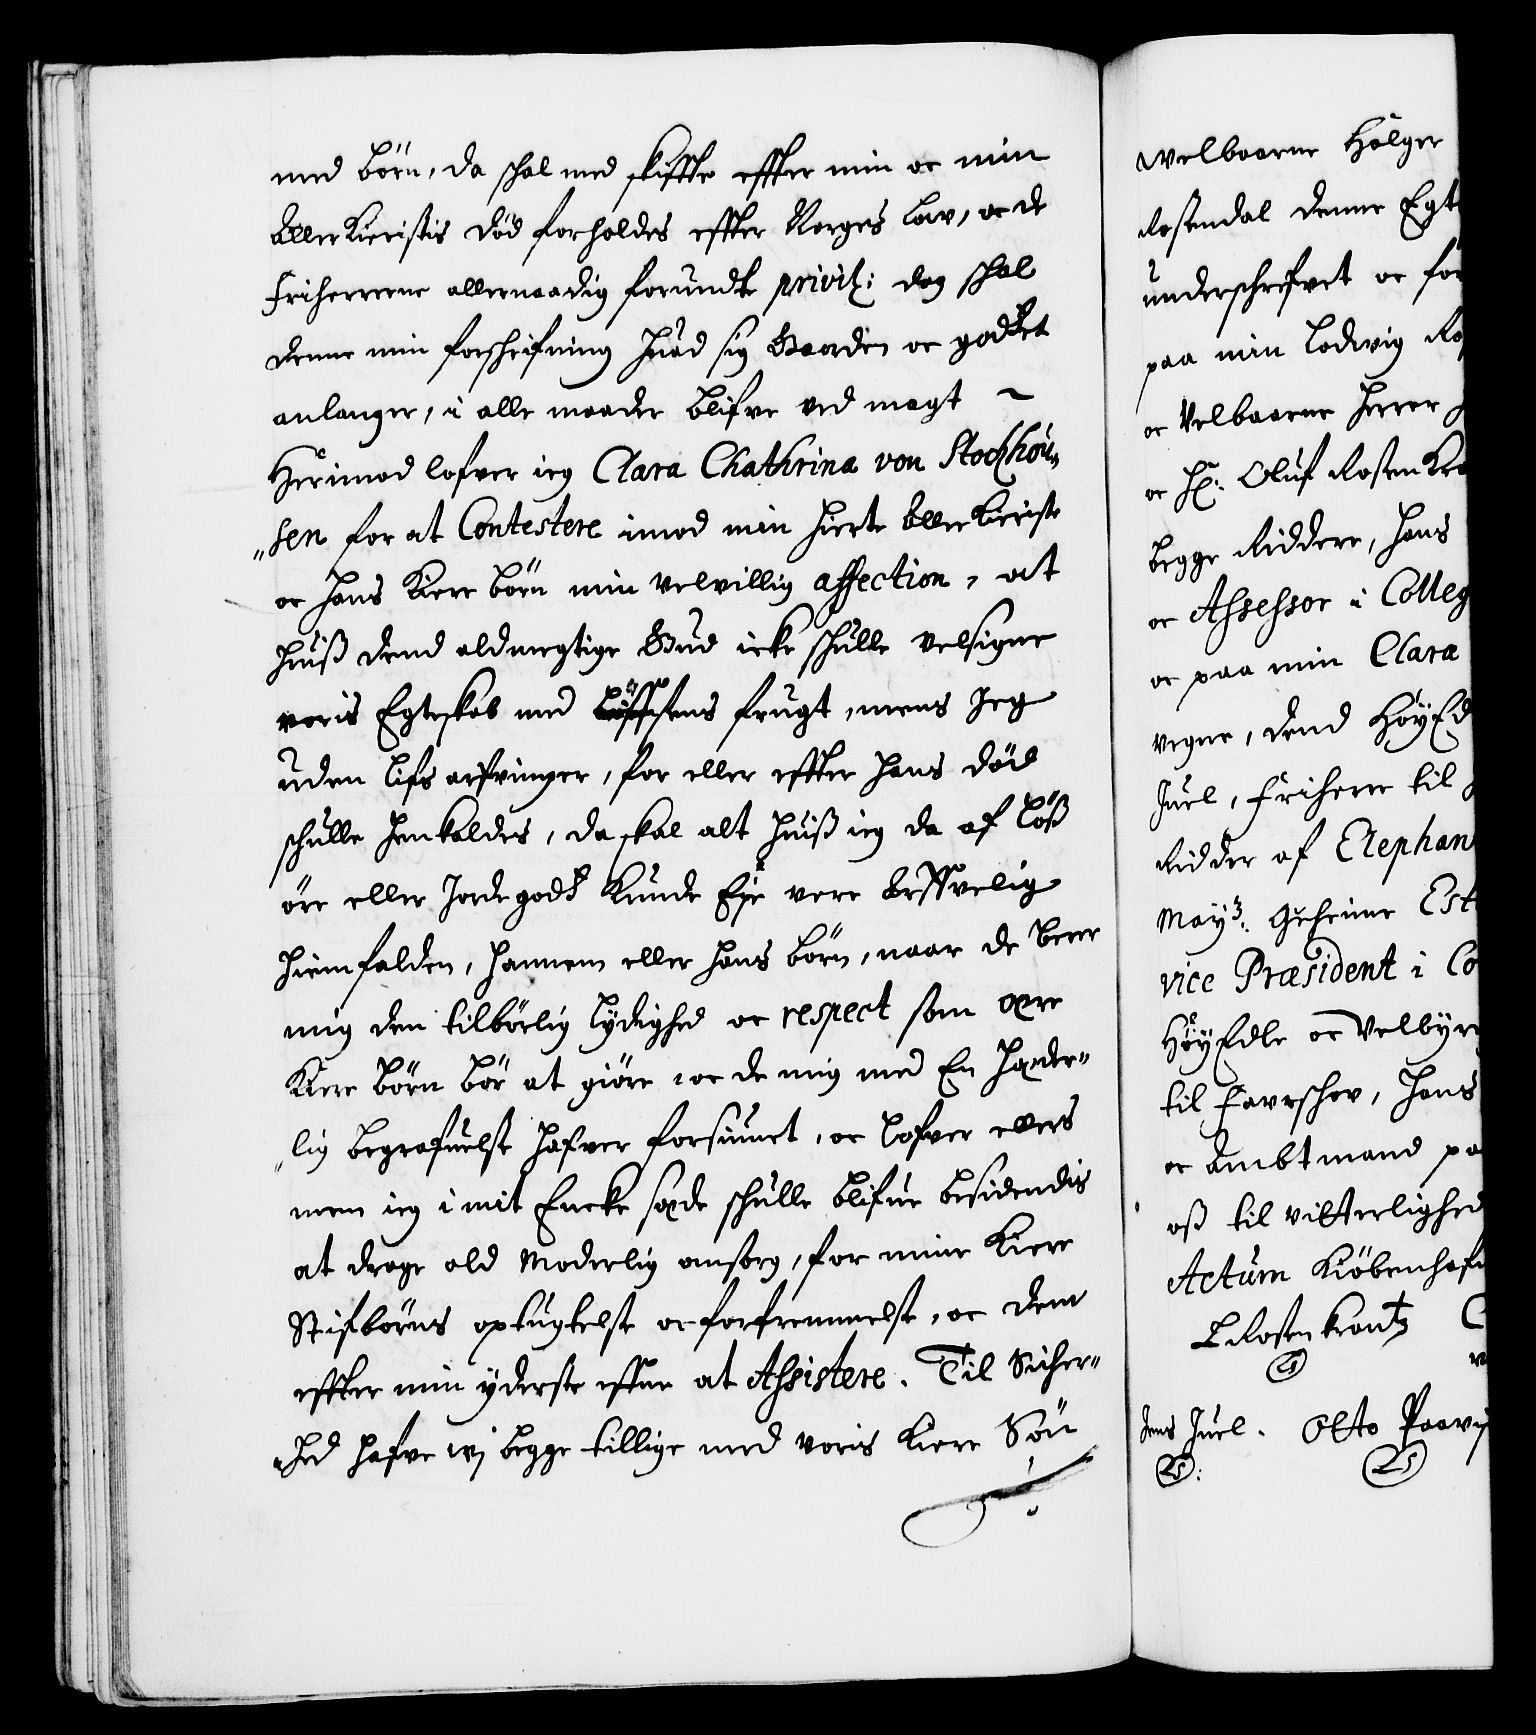 med börn, da schal med skiffte effter min oc min
Aller Kieristis död forholdes effter Norges Lov, oc de
Friherrerne allernaadig forundte privil: dog schal
denne min forskrifning huad sig Gaarden oc godtzet
anlanger, i alle maader blifve ved magt ~
Herimod lofver ieg Clara Chathrina von Stockhou„
„sen for at Contestere imod min hierte Aller Kieriste
oc hans Kiere börn min velvillig affection, at
huiß dend aldmegtige Gud icke schulle velsigne
voris Egteskab med Lifsens frugt, mens Jeg
uden lifs arfvinger, for eller effter hans död
schulle henkaldes, da skal alt huiß ieg da af löß
öre eller Jordegodtz Kunde Eÿe vere Arffvelig
hiemfalden, hannem eller hans börn, naar de berer
mig den tilbörlig lydighed oc respect som ære
Kiere börn bör at giöre, oc de mig med En hæder„
„lig begrafuelse hafver forsiunet, oc lofver ellers
men ieg i mit Encke sæde schulle blifue besidendis
at drage ald Moderlig omsorg, for mine Kiere
Stifbörns optugtelse oc forfremmelse, oc dem
effter min yderste effne at Assistere. Til Sicher„
„hed hafve wj begge tillige med voris Kiere Sön
Welbaarne Holger
Rosendal denne Egt
underschrifvet oc for
paa min Lodvig Ro
oc Velbaarne Herrer
oc Hr: Oluf Rosenkra
begge Riddere, Hans
oc Assessor i Colleg
oc paa min Clara
vegne, dend HöyEd
Juel, Friherre til
Ridder af Elephan
Mayts. Geheime Est
vice Præsident i Co
HöyEdle oc Velbyr
til Favrschov, Hans
oc Ambtmand pa
oß til vitterlighed
Actum Kiöbenhafn
LRosenkrantz C
LS
Jens Juel. Otto Paavis
LS: LS